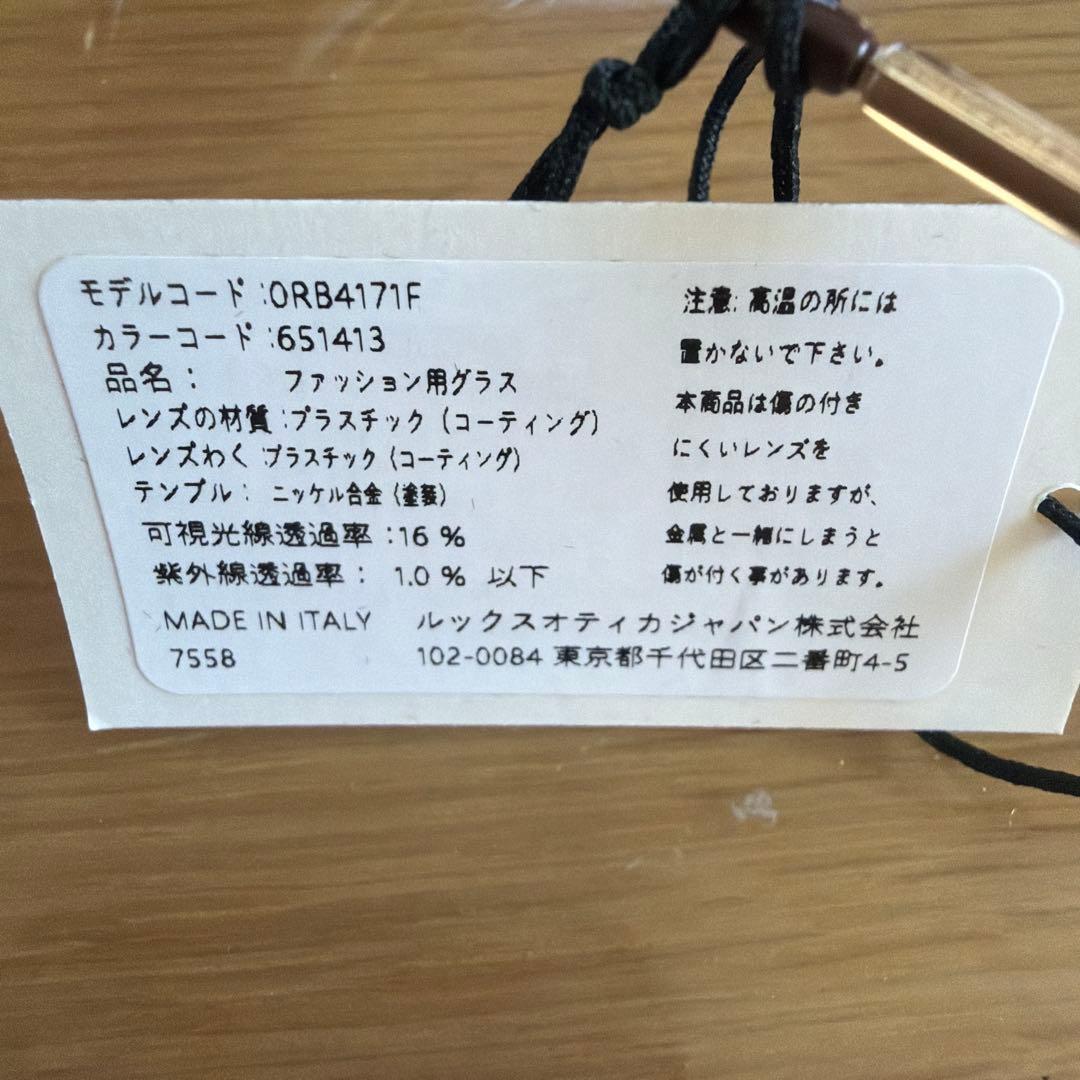 モデルコード:0RB4171F
カラーコード:651413
品名: ファッション用グラス
レンズの材質:プラスチック(コーティング)
レンズわく:プラスチック(コーティング)
テンプル: ニッケル合金(塗装)
可視光線透過率:16 %
紫外線透過率: 1.0 % 以下
MADE IN ITALY
7558
注意:高温の所には
置かないで下さい。
本商品は傷の付き
にくいレンズを
使用しておりますが、
金属と一緒にしまうと
傷が付く事があります。
ルックスオティカジャパン株式会社
102-0084 東京都千代田区二番町4-5